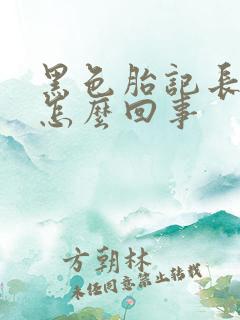 黑色胎記長
怎麼回事
方朝林
未经同意禁止转载